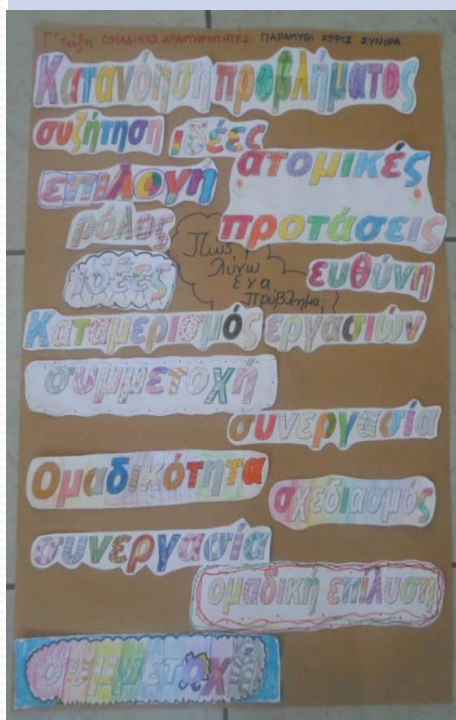 Γ' τάξη ΟΜΑΔΙΚΕΣ ΔΡΑΣΤΗΡΙΟΤΗΤΕΣ ΠΑΡΑΜΥΘΙ ΧΩΡΙΣ ΣΥΝΟΡΑ
Κατανόηση προβλήματος
συζήτηση ιδέες
ατομικές
επιλογή
ρόλος
προτάσεις
Πως
λύνω
ένα
πρόβλημα;
ιδέες
ευθύνη
Καταμερισμός εργασιών
συμμετοχή
συνεργασία
Ομαδικότητα
σχεδιασμός
συνεργασία
ομαδική επίλυση
συμμετοχή